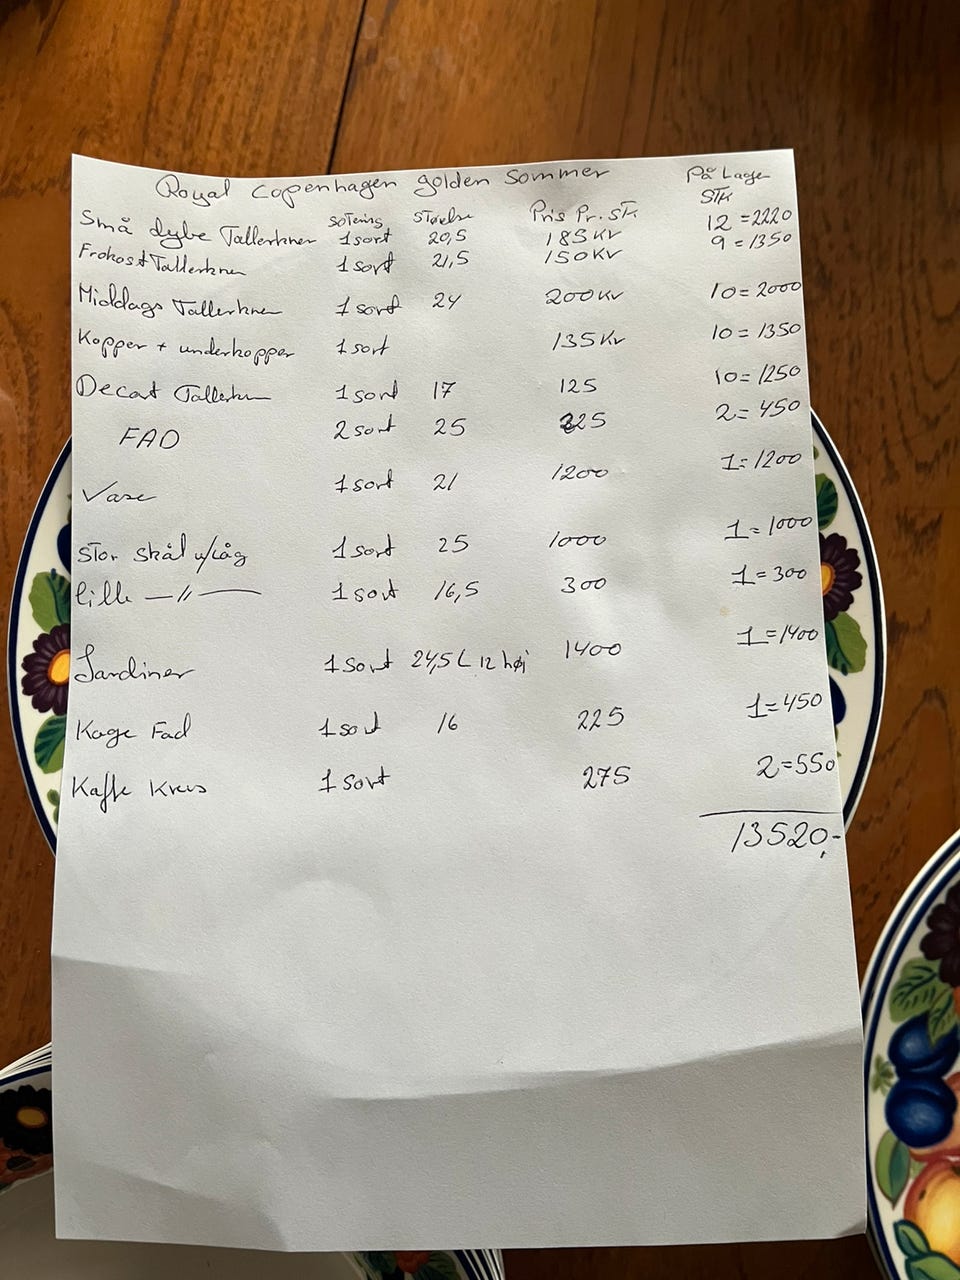 Royal Copenhagen golden Sommer
På Lage
STK
Sotering Størelse Pris Pr. stk
Små dybe Tallerkner 1 sort 20,5 185 Kr 12 = 2220
Frokost Tallerkner 1 sort 21,5 150 Kr 9 = 1350
Middags Tallerkner 1 sort 24 200 Kr 10 = 2000
Kopper + underkopper 1 sort 135 Kr 10 = 1350
Decart Tallerkn 1 sort 17 125 10 = 1250
FAD 2 sort 25 225 2 = 450
Vase 1 sort 21 1200 1 = 1200
Stor skål m/Låg 1 sort 25 1000 1 = 1000
lille —〃— 1 sort 16,5 300 1 = 300
Jardiner 1 sort 24,5 L 12 høj 1400 1 = 1400
Kage Fad 1 sort 16 225 1 = 450
Kaffe Krus 1 sort 275 2 = 550
13520,-